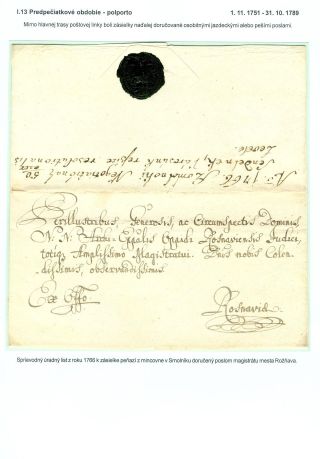 I.13 Predpečiatkové obdobie - polporto
1. 11. 1751 - 31. 10. 1789
Mimo hlavnej trasy poštovej linky boli zásielky naďalej doručované osobitnými jazdeckými alebo pešími poslami.
1766
Levele
Perillustribus, Generosis, ac Circumspectis Dominis
N. N. Oppidi Rosnaviensis Judici,
totiq Amplissimo Magistratui. Dnis nobis Colen-
dissimis, observandissimis.
Ex Offo.
Rosnaviæ
Sprievodný úradný list z roku 1766 k zásielke peňazí z mincovne v Smolníku doručený poslom magistrátu mesta Rožňava.